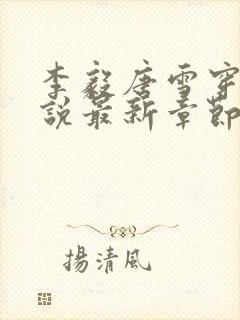 李毅唐雪穿
說最新章節
揚清風